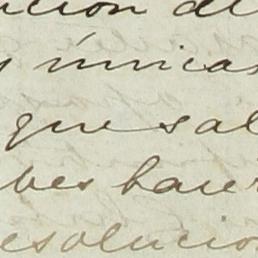 ución de
s únicas
que sal
bes hacer
esolucio